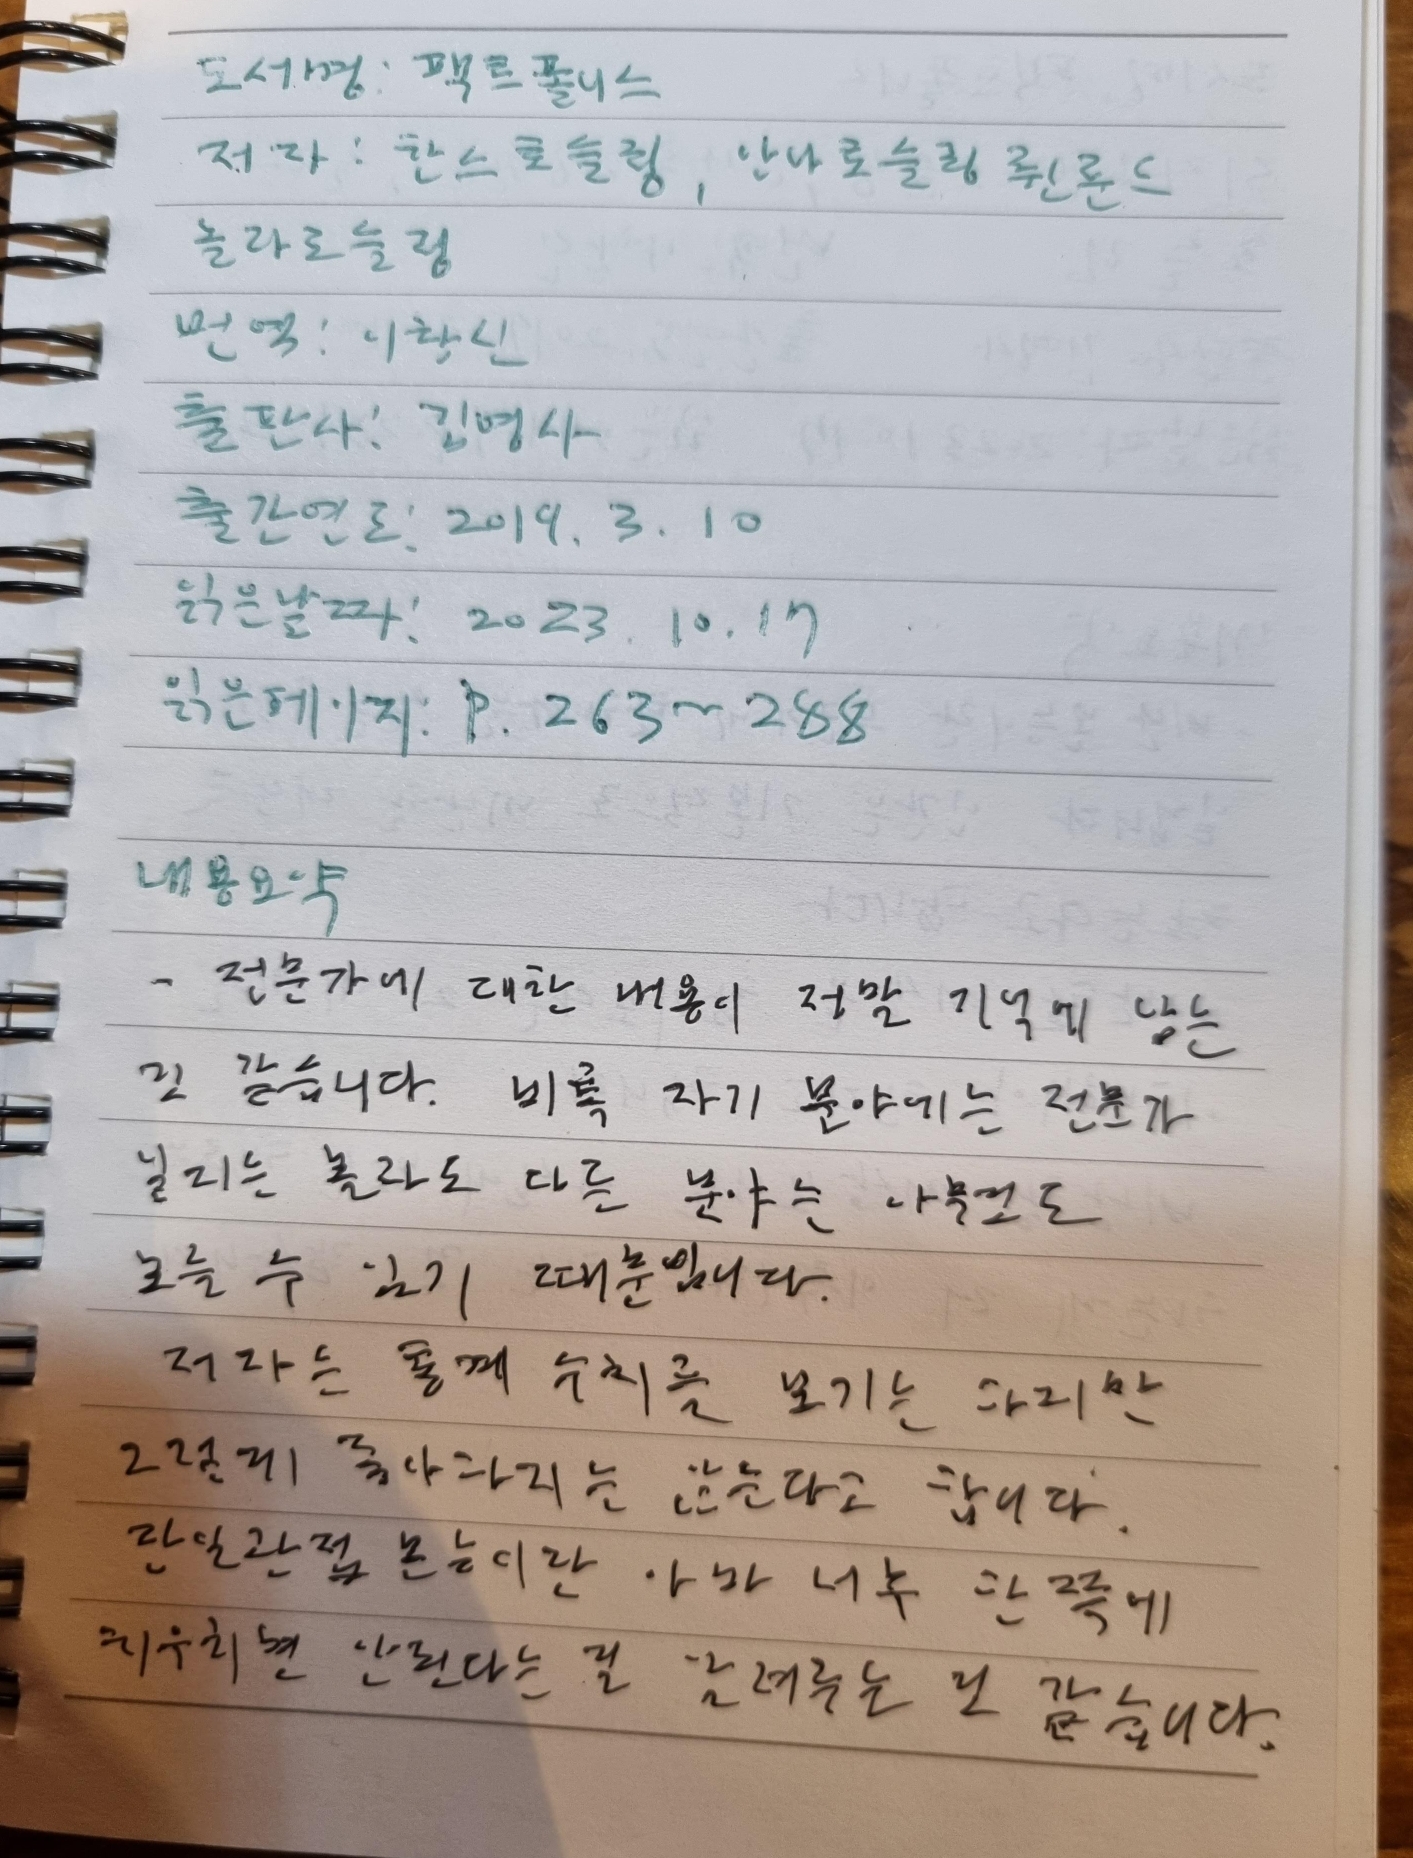 도서명: 팩트풀니스
저자: 한스로슬링, 안나로슬링 뢴룬드
놀라로슬링
번역: 이창신
출판사: 김영사
출간연도: 2019. 3. 10
읽은날짜: 2023. 10. 17
읽은페이지: P. 263~288
내용요약
- 전문가에 대한 내용이 정말 기억에 남는
것 같습니다. 비록 자기 분야에는 전문가
일지는 몰라도 다른 분야는 아무것도
모를 수 있기 때문입니다.
저자는 통계 수치를 보기는 하지만
그렇게 좋아하지는 않는다고 합니다.
단일관점 본능이란 아마 너무 한 쪽에
치우치면 안된다는 걸 알려주는 것 같습니다.